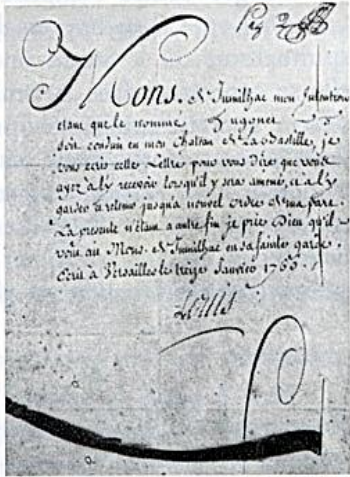 Mons. de Jumilhac mon Intention
etant que le nommé
soit conduit en mon Chateau de La Bastille, je
vous ecris cette Lettre pour vous dire que vous
ayez a l'y recevoir lorsqu'il y sera amené, et a l'y
garder et retenir jusqu'a nouvel ordre de ma part.
La presente n'etant a autre fin je prie Dieu qu'il
vous ait Mons. de Jumilhac en sa sainte garde.
Ecrit à Versailles le treize Janvier
Louis